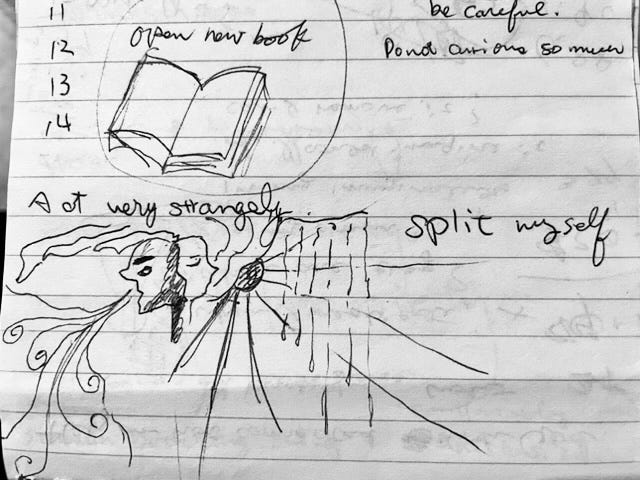 11
be careful.
12
open new book
Donot curious so much
13
14
Act very strangely
split myself